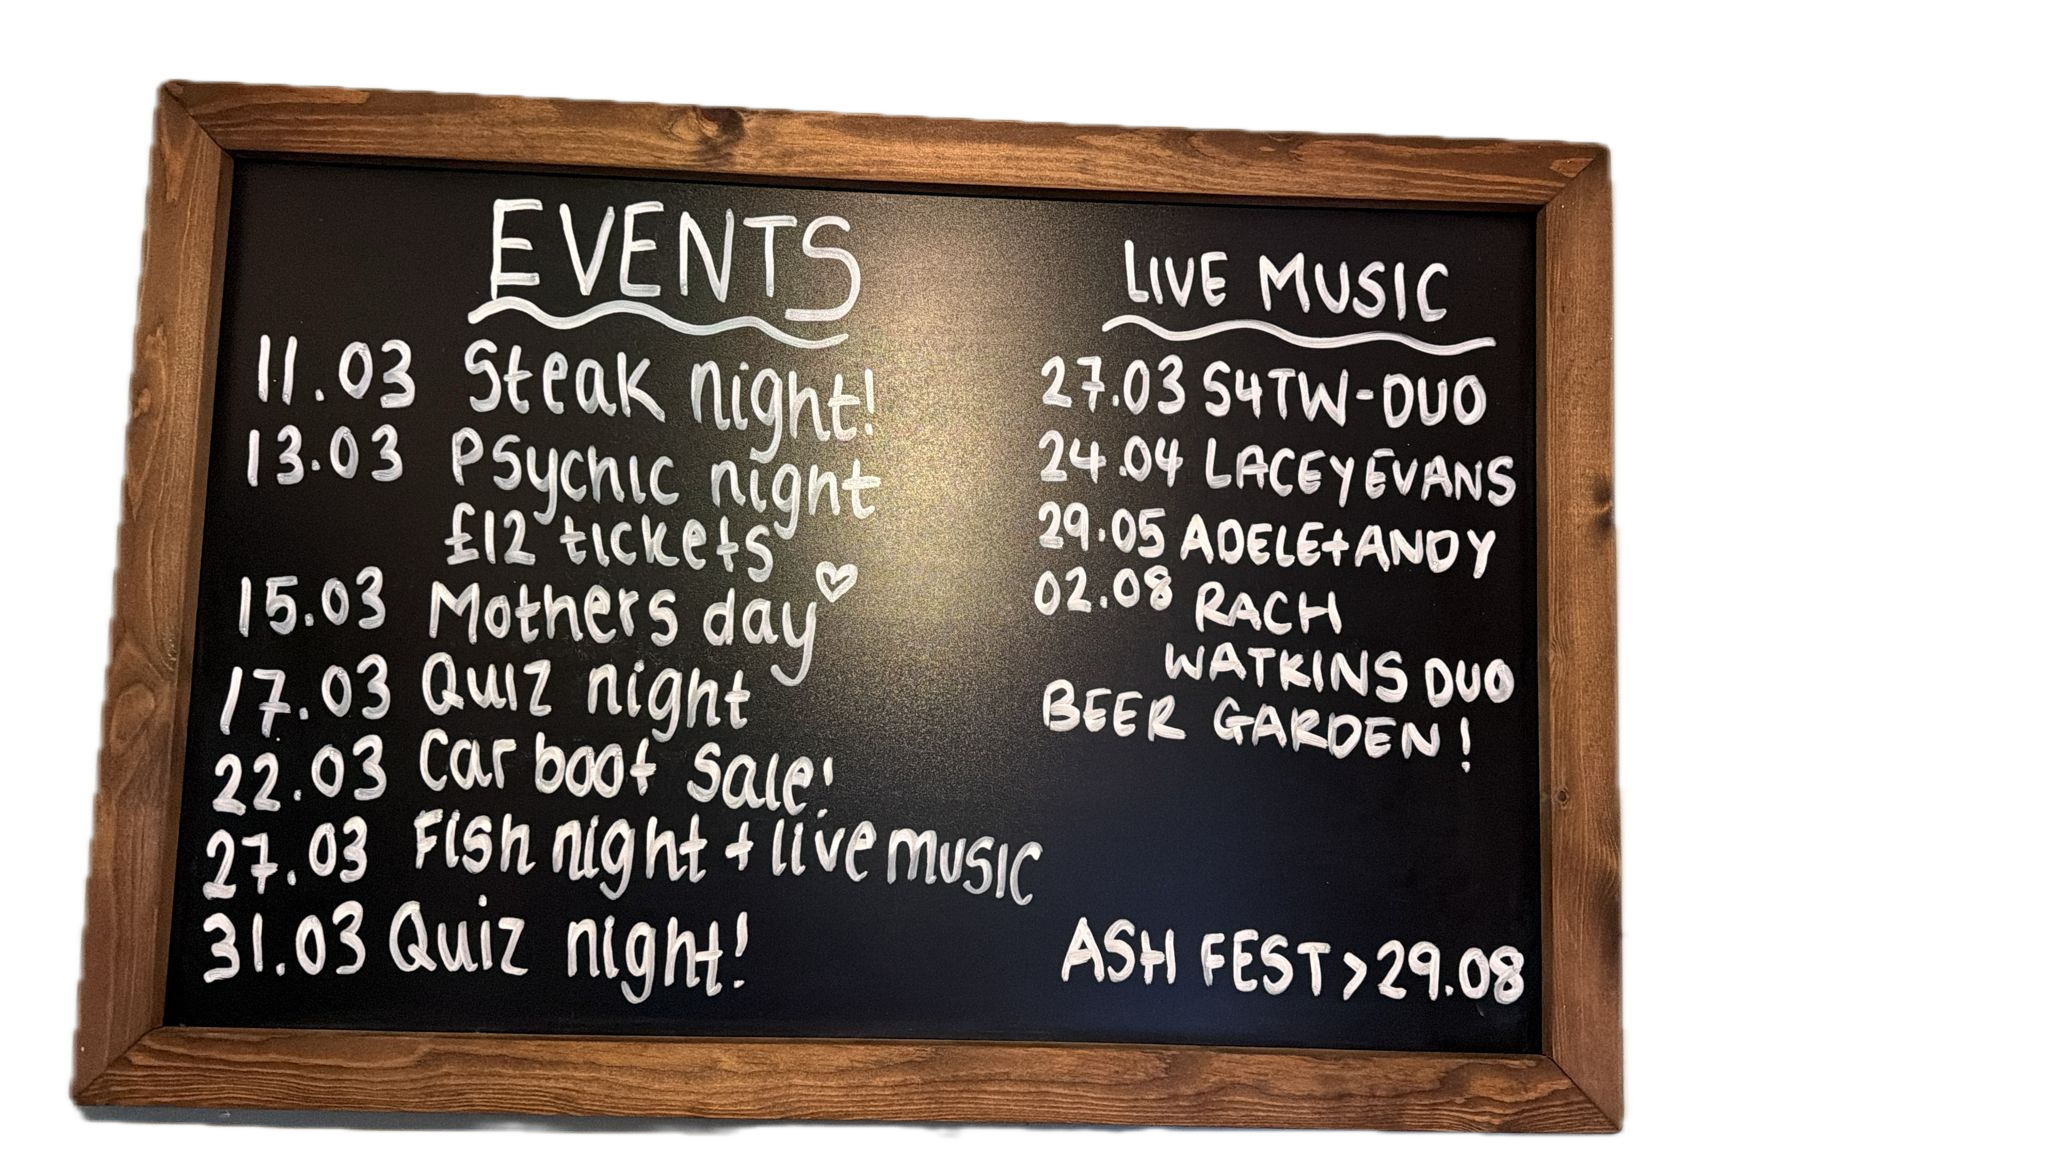 EVENTS
11.03 Steak night!
13.03 Psychic night
£12 tickets
15.03 Mothers day
17.03 Quiz night
22.03 Car boot sale!
27.03 Fish night + live music
31.03 Quiz night!
LIVE MUSIC
27.03 S4TW-DUO
24.04 LACEY EVANS
29.05 ADELE+ANDY
02.08 RACH
WATKINS DUO
BEER GARDEN!
ASH FEST > 29.08